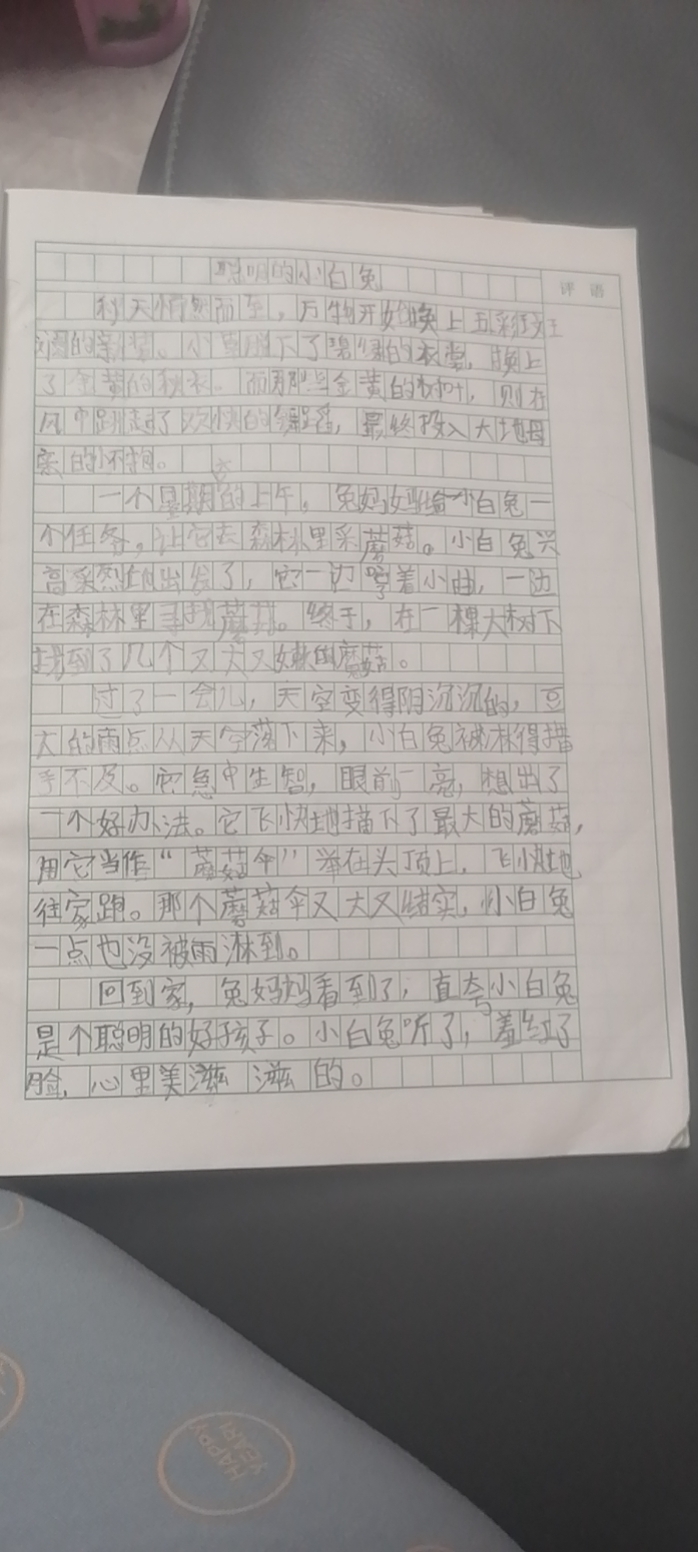 聪明的小白兔
评语
秋天悄然而至，万物开始换上五彩斑
斓的新装。小草脱下了碧绿的衣裳，换上
了金黄的秋衣。而那些金黄的树叶，则在
风中跳起了欢快的舞蹈，最终投入大地母
亲的怀抱。
一个星期六的上午，兔妈妈给小白兔一
个任务，让它去森林里采蘑菇。小白兔兴
高采烈地出发了，它一边哼着小曲，一边
在森林里寻找蘑菇。终于，在一棵大树下
找到了几个又大又嫩的蘑菇。
过了一会儿，天空变得阴沉沉的，豆
大的雨点从天空落下来，小白兔被淋得措
手不及。它急中生智，眼前一亮，想出了
一个好办法。它飞快地摘下了最大的蘑菇，
用它当作“蘑菇伞”举在头顶上，飞快地
往家跑。那个蘑菇伞又大又结实，小白兔
一点也没被雨淋到。
回到家，兔妈妈看到了，直夸小白兔
是个聪明的好孩子。小白兔听了，羞红了
脸，心里美滋滋的。
HAPPY
YEAR!